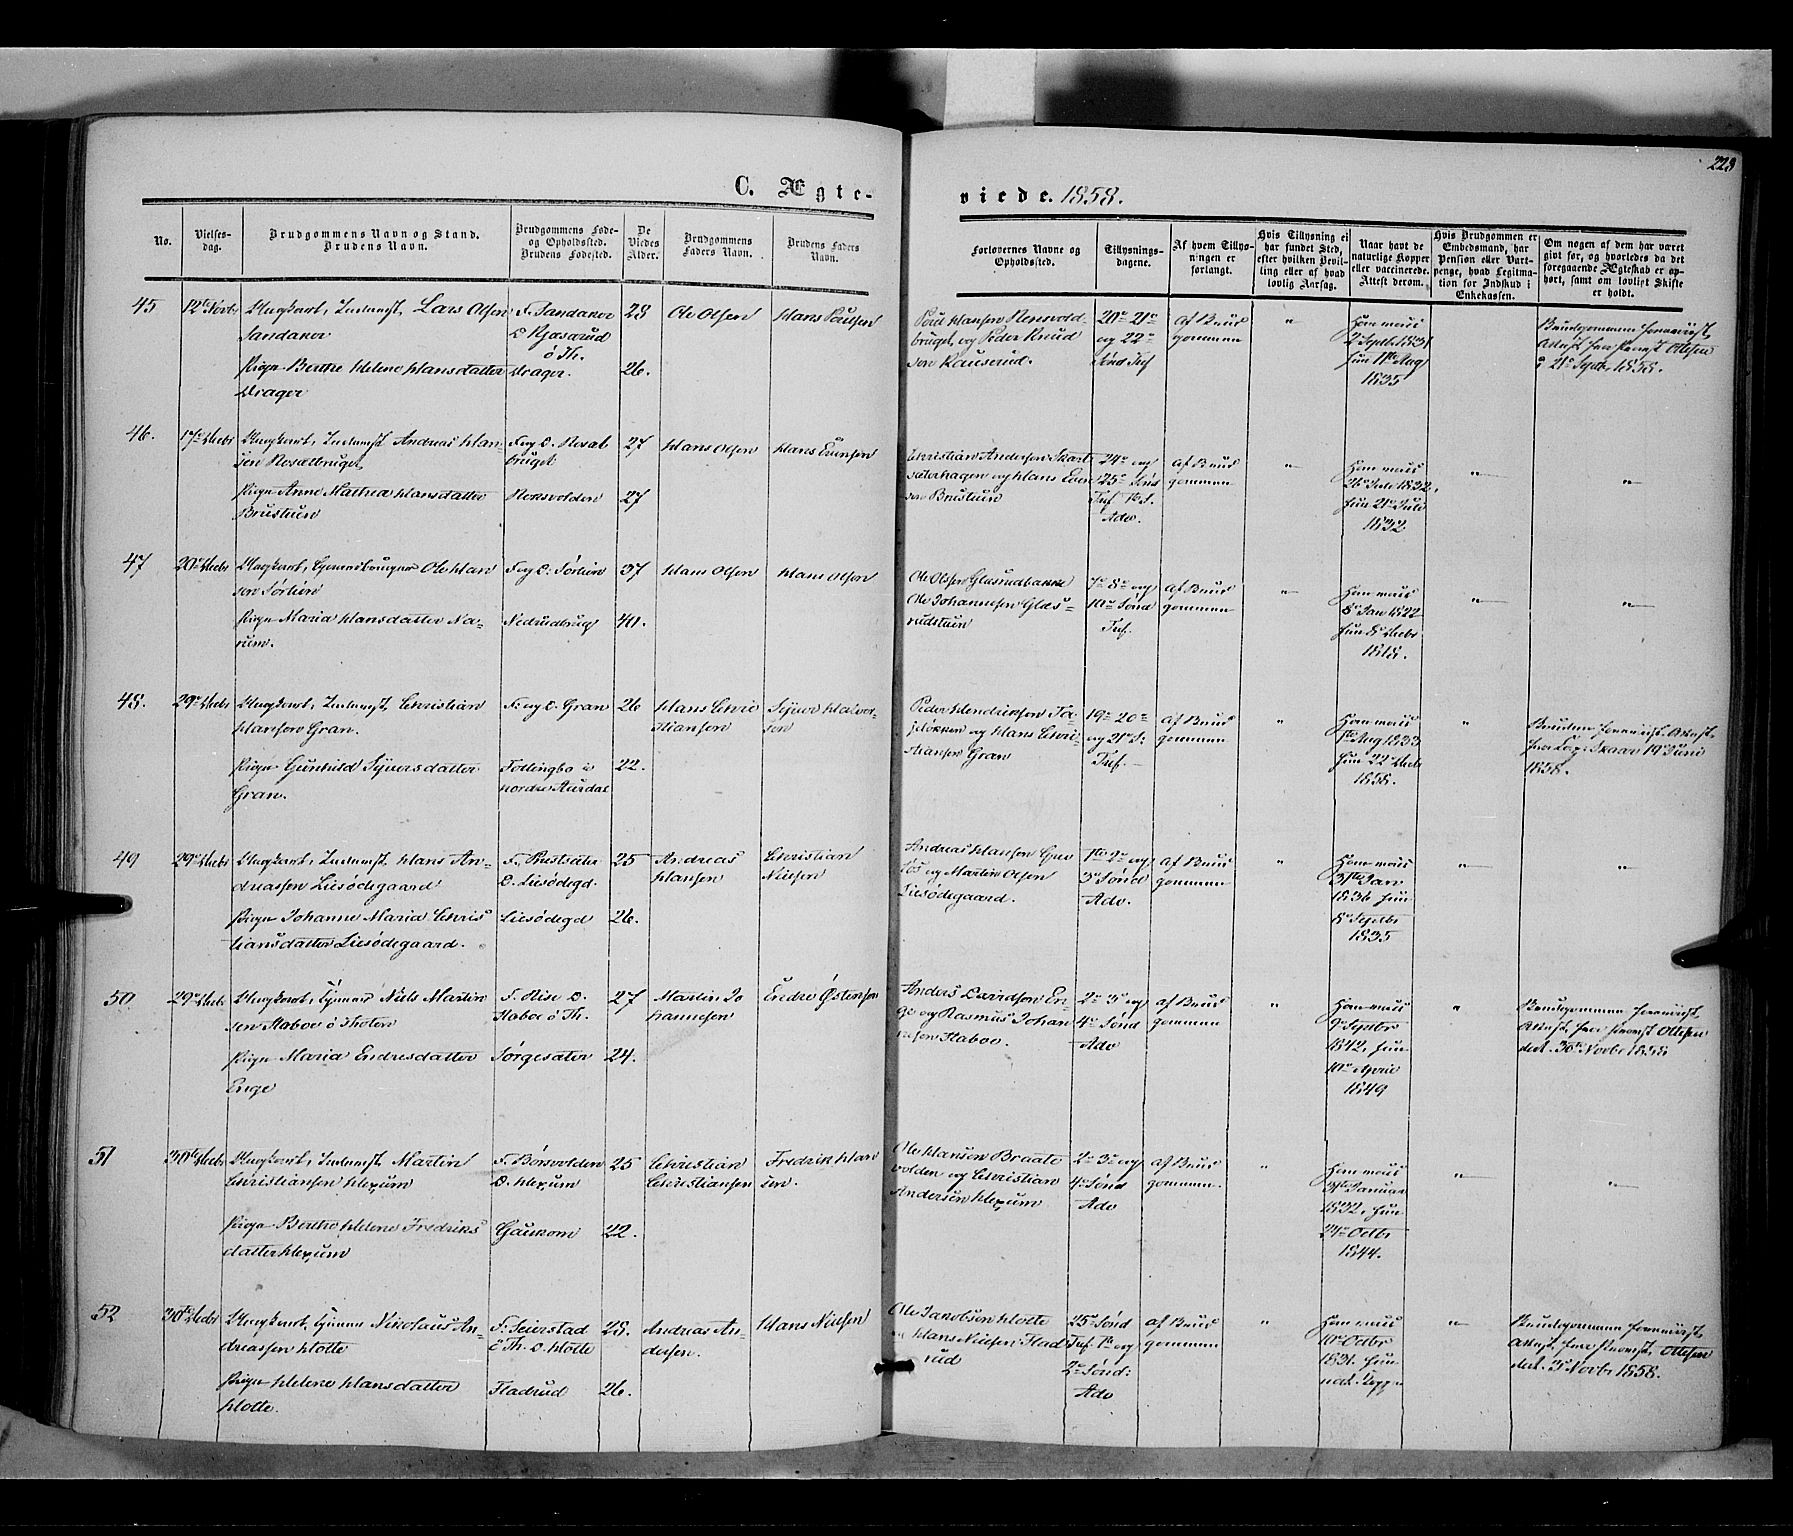 223
C. Ægte-
viede. 1858.
No.
Vielses-
dag.
Brudgommens Navn og Stand.
Brudens Navn.
Brudgommens Føde-
og Opholdssted.
Brudens Fødested.
De
Viedes
Alder.
Brudgommens
Faders Navn.
Brudens Faders
Navn.
Forlovernes Navne og
Opholdssted.
Tillysnings-
dagene.
Af hvem Tillys-
ningen er
forlangt.
Hvis Tillysning ei
har fundet Sted,
efter hvilken Bevil-
ling eller af hvad
lovlig Aarsag.
Naar havt de
naturlige Kopper
eller vaccinerede.
Attest derom.
Hvis Brudgommen er
Embedsmand, har
Pension eller Vart-
penge, hvad Legitima-
tion for Indskud i
Enkekassen.
Om nogen af dem har været
givt før, og hvorledes da det
foregaaende Ægteskab er op-
hørt, samt om lovligt Skifte
er holdt.
45
12te Novbr
Ungkarl, Inderst, Lars Olsen
Sandaker
Pigen Berthe Helene Hansdatter
Drager
F. Sandaker
O.
Drager.
28
26.
Ole Olsen
Hans Paulsen
Poul Hansen
bruget, og Peder Knud
sen Kauserud.
20de 21de
og 22de
Sønd Tref
af Brud
gommen
"
Ham
2 Septb 1831
hun 11te Aug
1835
Brudgommen
Attest fra Provst Ottesen
21de Septbr 1858.
46.
17de Decbr
Ungkarl, Inderst Andreas Han
sen Roselbruget
Pigen Anne Mathea Hansdatter
Brustuen
F. og O. Rosel
bruget
Roksvolden
27
27
Hans Olsen
Hans Evensen
Christian Andersen Skart
sæterhagen og Hans Even
sen Brustuen
24de og
25de Sønd
Tref 1te S.
Adv.
af Brud
gommen
"
1832,
hun 21de Juli
1832
"
"
47
20de Decbr
Ungkarl, Gaardbruger Ole Han
sen Sørlien
Pigen Maria Hansdatter Na-
rum.
F. og O. Sørlien
Nedrudbrug
37
40.
Hans Olsen
Hans Olsen
Ole Olsen Glæsrudbakke
Ole Johannesen Glæs-
rudstuen
7de 8de og
10de Sønd
Tref.
af Brud
gommen
"
8de Jan 1822
hun 8de Decbr
1818.
"
"
48.
29de Decbr
Ungkarl, Inderst, Christian
Hansen Gran.
Pigen Gunhild Syversdatter
Gran.
F. og O. Gran
nordre Aurdal
26
22.
Hans Chri
stiansen
Syver Halvor-
sen
Peder Hendriksen
og Hans Chri-
stiansen Gran
19de 20de
og 21de S:
Tref.
af Brud
gommen
"
1te Aug 1833
hun 22de Decb
1858.
"
19de Juni
1858.
49
29de Decbr
Ungkarl, Inderst Hans An-
dreassen Liesødegaard
Pigen Johanne Maria Chris
tiansdatter Liesødegaard.
F. Præstsæter
O. Liesødegd.
Liesødegd
25
26.
Andreas
Hansen
Christian
Nielsen
Andreas Hansen
og Martin Olsen
Liesødegaard.
1te 2de og
3de Sønd
Adv.
af Brud
gommen
"
31te Jan.
1836 hun
8de Septbr
1835
"
"
50
29de Decbr
Ungkarl, Niels Martin
sen Staboe ö Thoten
Pigen Maria Endresdatter
Enge
F. Rise O.
Staboe ö Th.
Sørgesæter
27
24.
Martin Jo
hannesen
Endre Østensen
Anders Davidsen En
ge og Rasmus Johan
nesen Staboe.
2de 3de og
4de Sønd
Adv
af Brud
gommen
"
9de Septbr
1842, hun
10de April
1849
"
Brudgommen
Attest fra Provst Ottesen
dat. 30te Novbr 1858
51
30te Decbr
Ungkarl, Inderst Martin
Christiansen Hexum
Pigen Berthe Helene Fredriks
datter Hexum
F. Børsvolden
O. Hexum
Gaukom
25
22.
Christian
Christiansen
Fredrik Han
sen.
Ole Hansen Braate
volden og Christian
Andersen Hexum
2de 3de og
4de Sønd
Adv
af Brud
gommen.
"
31te Januar
1832, hun
24de Octbr
1844.
"
"
52
30te Decbr
Ungkarl, Nikolaus An-
dreassen Klotte
Pigen Helene Hansdatter
Klotte.
F. Seierstad
ö Th. O. Klotte
Fladrud
28.
26.
Andreas An-
dersen.
Hans Nielsen
Ole Jacobsen Klotte
Hans Nielsen Flad
rud
25de Sønd
Tref. 1te og
2de Sønd:
Adv
af Brud
gommen
"
10de Octbr
1831. hun
"
Brudgommen
Attest fra Provst, Ottesen
dat. Novbr 1858.